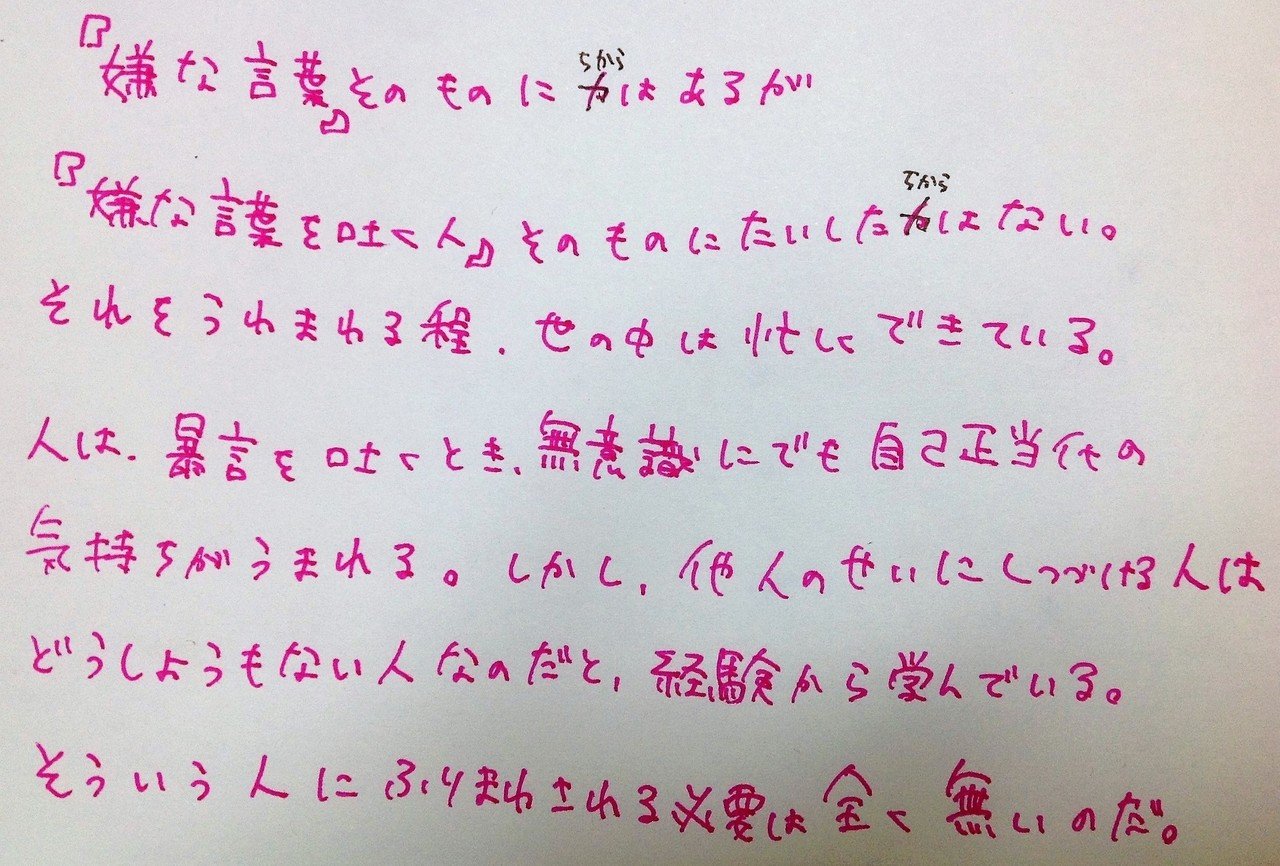 『嫌な言葉』そのものに力はあるが
『嫌な言葉を吐く人』そのものにたいした力はない。
それをうわまわる程、世の中は忙しくできている。
人は、暴言を吐くとき、無意識にでも自己正当代の
気持ちがうまれる。しかし、他人のせいにしつづける人は
どうしようもない人なのだと、経験から学んでいる。
そういう人にふりまわされる必要は全く無いのだ。